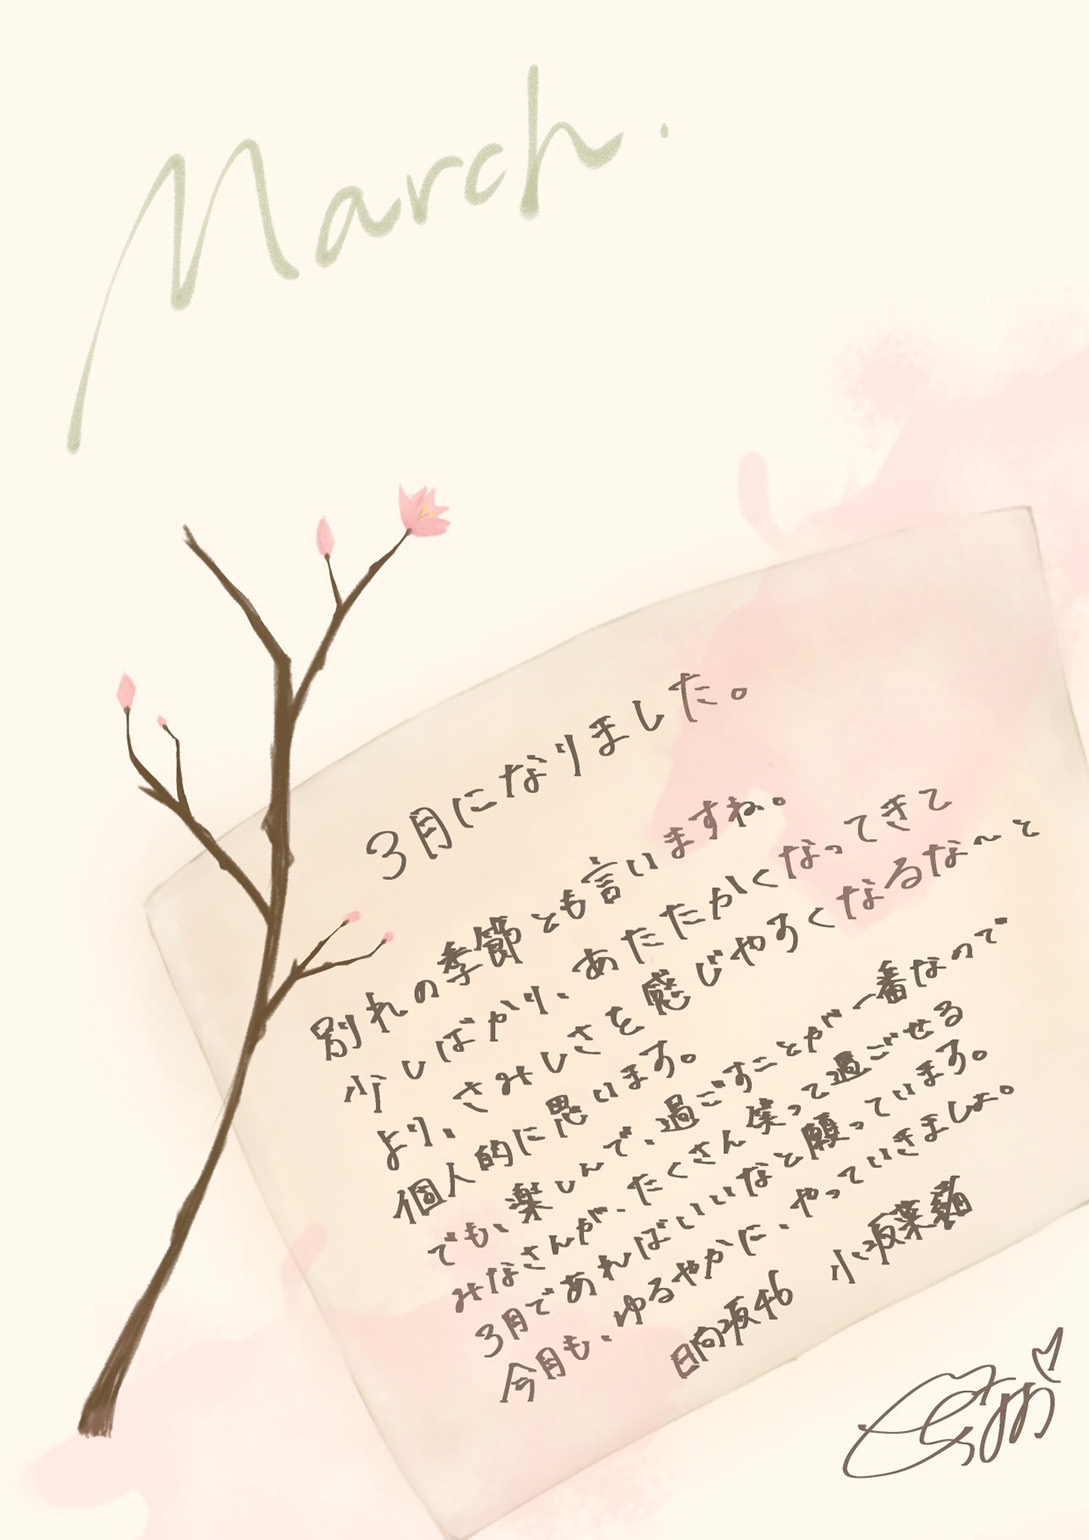 March.
3月になりました。
別れの季節とも言いますね。
少しばかり、あたたかくなってきて
より、さみしさを感じやすくなるな〜と
個人的に思います。
でも、楽しんで、過ごすことが一番なので
みなさんが、たくさん笑って過ごせる
3月であればいいなと願っています。
今月も、ゆるやかに、やっていきましょ。
日向坂46 小坂菜緒